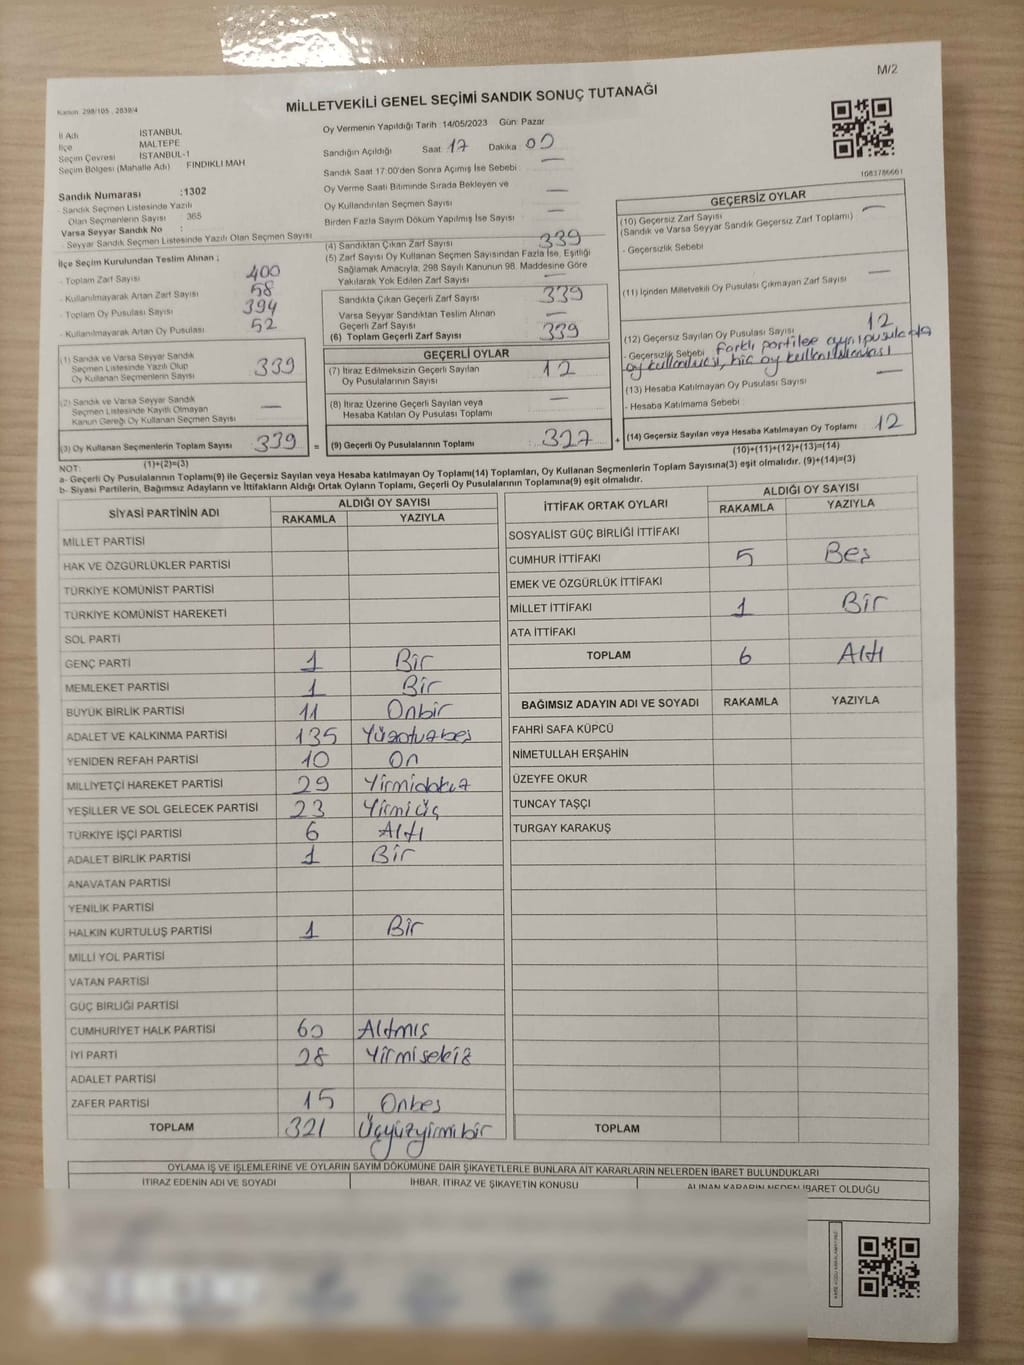 M/2
Kanun: 298/105 , 2839/4
MİLLETVEKİLİ GENEL SEÇİMİ SANDIK SONUÇ TUTANAĞI
İl Adı İSTANBUL
İlçe MALTEPE
Seçim Çevresi İSTANBUL-1
Seçim Bölgesi (Mahalle Adı) FINDIKLI MAH
Sandık Numarası :1302
- Sandık Seçmen Listesinde Yazılı
Olan Seçmenlerin Sayısı 365
Varsa Seyyar Sandık No :
- Seyyar Sandık Seçmen Listesinde Yazılı Olan Seçmen Sayısı
Oy Vermenin Yapıldığı Tarih 14/05/2023 Gün: Pazar
Sandığın Açıldığı Saat 17 Dakika 00
Sandık Saat 17:00'den Sonra Açılmış İse Sebebi —
Oy Verme Saati Bitiminde Sırada Bekleyen ve
Oy Kullandırılan Seçmen Sayısı —
Birden Fazla Sayım Döküm Yapılmış İse Sayısı —
1083786661
İlçe Seçim Kurulundan Teslim Alınan ;
- Toplam Zarf Sayısı 400
- Kullanılmayarak Artan Zarf Sayısı 58
- Toplam Oy Pusulası Sayısı 394
- Kullanılmayarak Artan Oy Pusulası 52
(1) Sandık ve Varsa Seyyar Sandık
Seçmen Listesinde Yazılı Olup
Oy Kullanan Seçmenlerin Sayısı 339
(2) Sandık ve Varsa Seyyar Sandık
Seçmen Listesinde Kayıtlı Olmayan
Kanun Gereği Oy Kullanan Seçmen Sayısı —
(3) Oy Kullanan Seçmenlerin Toplam Sayısı 339
(1)+(2)=(3)
(4) Sandıktan Çıkan Zarf Sayısı 339
(5) Zarf Sayısı Oy Kullanan Seçmen Sayısından Fazla İse, Eşitliği
Sağlamak Amacıyla, 298 Sayılı Kanunun 98. Maddesine Göre
Yakılarak Yok Edilen Zarf Sayısı —
Sandıkta Çıkan Geçerli Zarf Sayısı 339
Varsa Seyyar Sandıktan Teslim Alınan
Geçerli Zarf Sayısı —
(6) Toplam Geçerli Zarf Sayısı 339
GEÇERLİ OYLAR
(7) İtiraz Edilmeksizin Geçerli Sayılan
Oy Pusulalarının Sayısı 12
(8) İtiraz Üzerine Geçerli Sayılan veya
Hesaba Katılan Oy Pusulası Toplamı —
= (9) Geçerli Oy Pusulalarının Toplamı 327
GEÇERSİZ OYLAR
(10) Geçersiz Zarf Sayısı
(Sandık ve Varsa Seyyar Sandık Geçersiz Zarf Toplamı) —
- Geçersizlik Sebebi
(11) İçinden Milletvekili Oy Pusulası Çıkmayan Zarf Sayısı —
(12) Geçersiz Sayılan Oy Pusulası Sayısı 12
- Geçersizlik Sebebi Farklı partilere aynı pusulada
oy kullanılması, hiç oy kullanılmaması
(13) Hesaba Katılmayan Oy Pusulası Sayısı —
- Hesaba Katılmama Sebebi
+ (14) Geçersiz Sayılan veya Hesaba Katılmayan Oy Toplamı 12
(10)+(11)+(12)+(13)=(14)
NOT:
a- Geçerli Oy Pusulalarının Toplamı(9) ile Geçersiz Sayılan veya Hesaba katılmayan Oy Toplamı(14) Toplamları, Oy Kullanan Seçmenlerin Toplam Sayısına(3) eşit olmalıdır. (9)+(14)=(3)
b- Siyasi Partilerin, Bağımsız Adayların ve İttifakların Aldığı Ortak Oyların Toplamı, Geçerli Oy Pusulalarının Toplamına(9) eşit olmalıdır.
SİYASİ PARTİNİN ADI ALDIĞI OY SAYISI
RAKAMLA YAZIYLA
MİLLET PARTİSİ
HAK VE ÖZGÜRLÜKLER PARTİSİ
TÜRKİYE KOMÜNİST PARTİSİ
TÜRKİYE KOMÜNİST HAREKETİ
SOL PARTİ
GENÇ PARTİ 1 Bir
MEMLEKET PARTİSİ 1 Bir
BÜYÜK BİRLİK PARTİSİ 11 Onbir
ADALET VE KALKINMA PARTİSİ 135 Yüzotuzbeş
YENİDEN REFAH PARTİSİ 10 On
MİLLİYETÇİ HAREKET PARTİSİ 29 Yirmidokuz
YEŞİLLER VE SOL GELECEK PARTİSİ 23 Yirmiüç
TÜRKİYE İŞÇİ PARTİSİ 6 Altı
ADALET BİRLİK PARTİSİ 1 Bir
ANAVATAN PARTİSİ
YENİLİK PARTİSİ
HALKIN KURTULUŞ PARTİSİ 1 Bir
MİLLİ YOL PARTİSİ
VATAN PARTİSİ
GÜÇ BİRLİĞİ PARTİSİ
CUMHURİYET HALK PARTİSİ 60 Altmış
İYİ PARTİ 28 Yirmisekiz
ADALET PARTİSİ
ZAFER PARTİSİ 15 Onbeş
TOPLAM 321 Üçyüzyirmibir
İTTİFAK ORTAK OYLARI ALDIĞI OY SAYISI
RAKAMLA YAZIYLA
SOSYALİST GÜÇ BİRLİĞİ İTTİFAKI
CUMHUR İTTİFAKI 5 Beş
EMEK VE ÖZGÜRLÜK İTTİFAKI
MİLLET İTTİFAKI 1 Bir
ATA İTTİFAKI
TOPLAM 6 Altı
BAĞIMSIZ ADAYIN ADI VE SOYADI RAKAMLA YAZIYLA
FAHRİ SAFA KÜPCÜ
NİMETULLAH ERŞAHİN
ÜZEYFE OKUR
TUNCAY TAŞÇI
TURGAY KARAKUŞ
TOPLAM
OYLAMA İŞ VE İŞLEMLERİNE VE OYLARIN SAYIM DÖKÜMÜNE DAİR ŞİKAYETLERLE BUNLARA AİT KARARLARIN NELERDEN İBARET BULUNDUKLARI
İTİRAZ EDENİN ADI VE SOYADI İHBAR, İTİRAZ VE ŞİKAYETİN KONUSU ALINAN KARARIN NEDEN İBARET OLDUĞU